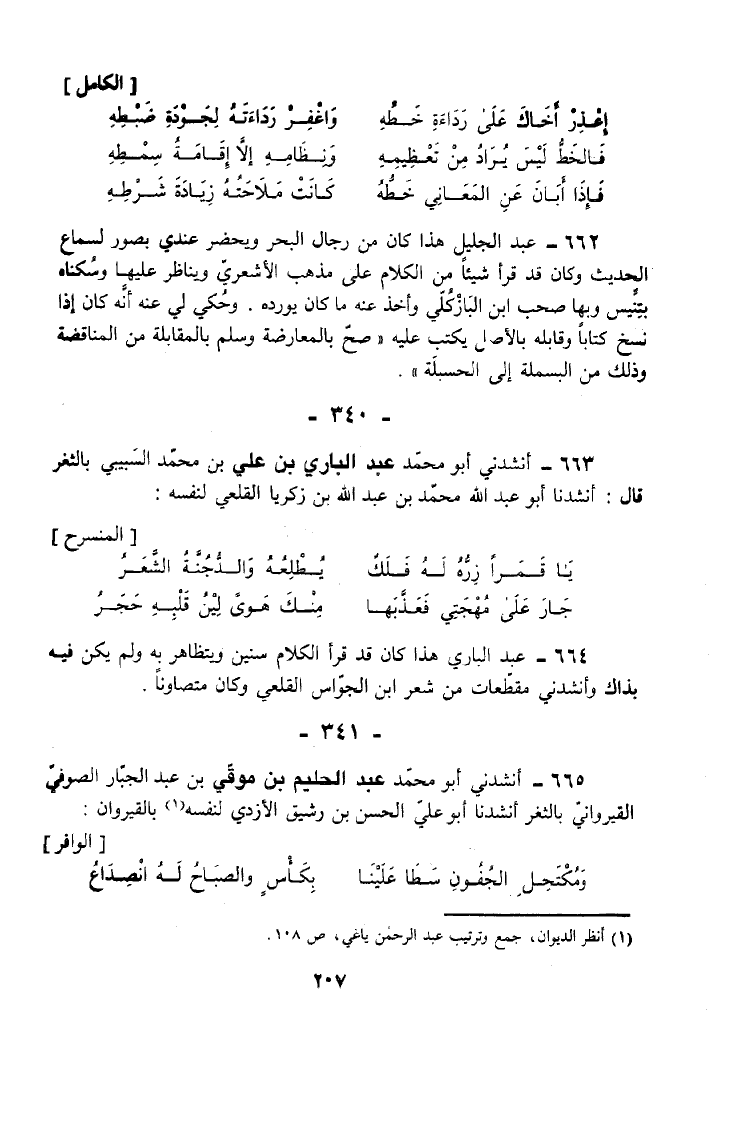 [ الكامل ]
إعْـذِرْ أَخَـاكَ عَلَىٰ رَدَاءَةِ خَـطِّهِ وَاغْفِـرْ رَدَاءَتَـهُ لِجَـوْدَةِ ضَبْـطِهِ
فَـالخَطُّ لَيْسَ يُـرَادُ مِنْ تَعْـظِيمِـهِ وَنِـظَامِـهِ إلَّا إقَـامَـةُ سِمْـطِهِ
فَـإذَا أَبَـانَ عَنِ المَعَـانِي خَطُّـهُ كَـانَتْ مَـلَاحَتُـهُ زِيَـادَةَ شَـرْطِهِ
٦٦٢ ـ عبد الجليل هذا كان من رجال البحر ويحضر عندي بصور لسماع
الحديث وكان قد قرأ شيئاً من الكلام على مذهب الأشعريّ ويناظر عليهـا وسُكناه
بتِنِّيس وبها صحب ابن البَازْكُلّي وأخذ عنه ما كان يورده . وحُكي لي عنه أنَّه كان إذا
نسخ كتاباً وقابله بالأصل يكتب عليه « صحّ بالمعارضة وسلم بالمقابلة من المناقضة
وذلك من البسملة إلى الحسبلَة » .
- ٣٤٠ -
٦٦٣ ـ أنشدني أبو محمّد عبد الباري بن علي بن محمّد السَبيبي بالثغر
قال : أنشدنا أبو عبد الله محمّد بن عبد الله بن زكريا القلعي لنفسه :
[ المنسرح ]
يَـا قَـمَـراً زِرُّهُ لَـهُ فَـلَكٌ يُـطْلِعُـهُ وَالـدُّجُنَّـةُ الشَّعَـرُ
جَـارَ عَلَىٰ مُهْجَتِي فَعَـذَّبَهـا مِنْـكَ هَـوىً لِيْنُ قَلْبِـهِ حَجَـرُ
٦٦٤ ـ عبد الباري هذا كان قد قرأ الكلام سنين ويتظاهر به ولم يكن فيه
بذاك وأنشدني مقطّعات من شعر ابن الجوّاس القلعي وكان متصاوناً .
- ٣٤١ -
٦٦٥ ـ أنشدني أبو محمّد عبد الحليم بن موقّي بن عبد الجبّار الصوفيّ
القيروانيّ بالثغر أنشدنا أبو عليّ الحسن بن رشيق الأزدي لنفسه(١) بالقيروان :
[ الوافر ]
وَمُكْتَحِـلِ الجُفُـونِ سَـطَا عَلَيْنَـا بِكَـأْسٍ والصبَـاحُ لَـهُ انْصِـدَاعُ
(١) أنظر الديوان، جمع وترتيب عبد الرحمٰن ياغي، ص ١٠٨.
٢٠٧